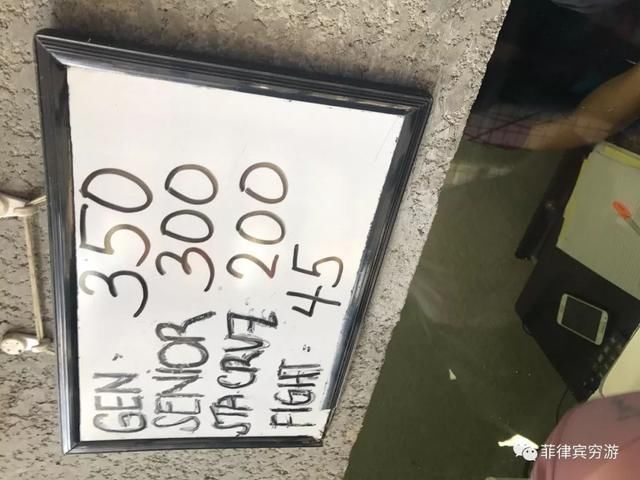 GEN - 350
SENIOR 300
STA CRUZ 200
FIGHT - 45
菲律宾穷游